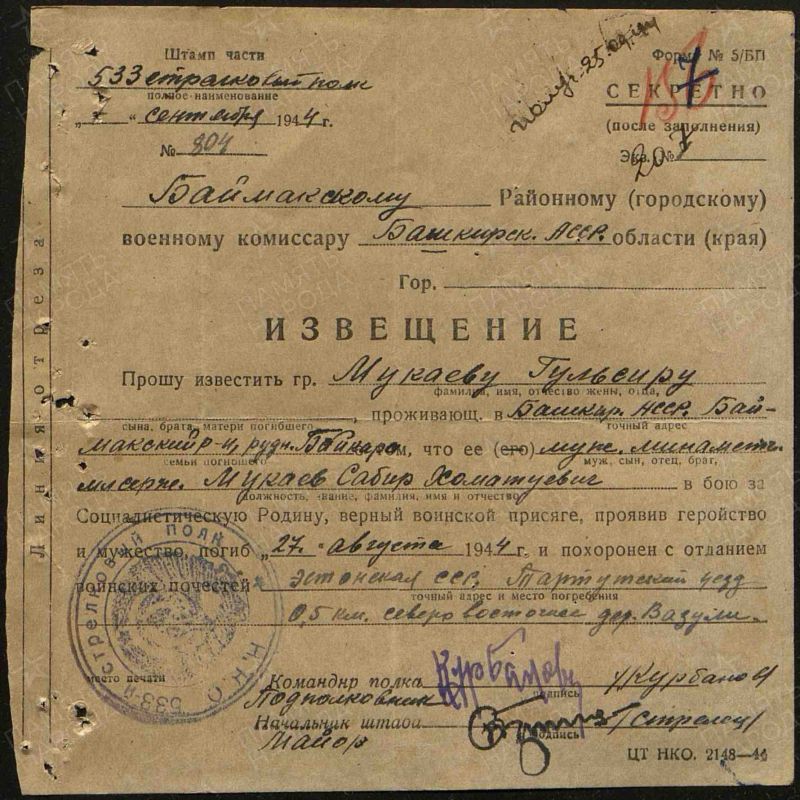 Штамп части
533 стрелковый полк
полное наименование
„7“ сентября 1944 г.
№ 804
Получ. 25.09.44
Форма № 5/БП
СЕКРЕТНО
(после заполнения)
Экз. №
207
Баймакскому Районному (городскому)
военному комиссару Башкирск. АССР. области (края)
Гор.
ИЗВЕЩЕНИЕ
Прошу известить гр. Мукаеву Гульсиру
фамилия, имя, отчество жены, отца,
проживающ. в Башкир. АССР. Бай-
сына, брата, матери погибшего
точный адрес
макский р-н, рудн. том, что ее (его) муж. минаметч.
семьи погибшего
муж, сын, отец, брат,
мл. серж. Мукаев Сабир Хоматуевич в бою за
должность, звание, фамилия, имя и отчество
Социалистическую Родину, верный воинской присяге, проявив геройство
и мужество, погиб „27.“ августа 1944 г. и похоронен с отданием
воинских почестей Эстонская ССР, Тартутский уезд
точный адрес и место погребения
0,5 км. северо восточнее дер. Вазули.
место печати
Командир полка Курбанов /Курбанов/
Подполковник
подпись
Начальник штаба /Стрелец/
Майор
подпись
ЦТ НКО. 2148—44
Линия отреза
533-й СТРЕЛКОВЫЙ ПОЛК
Н.К.О.
ПАМЯТЬ НАРОДА